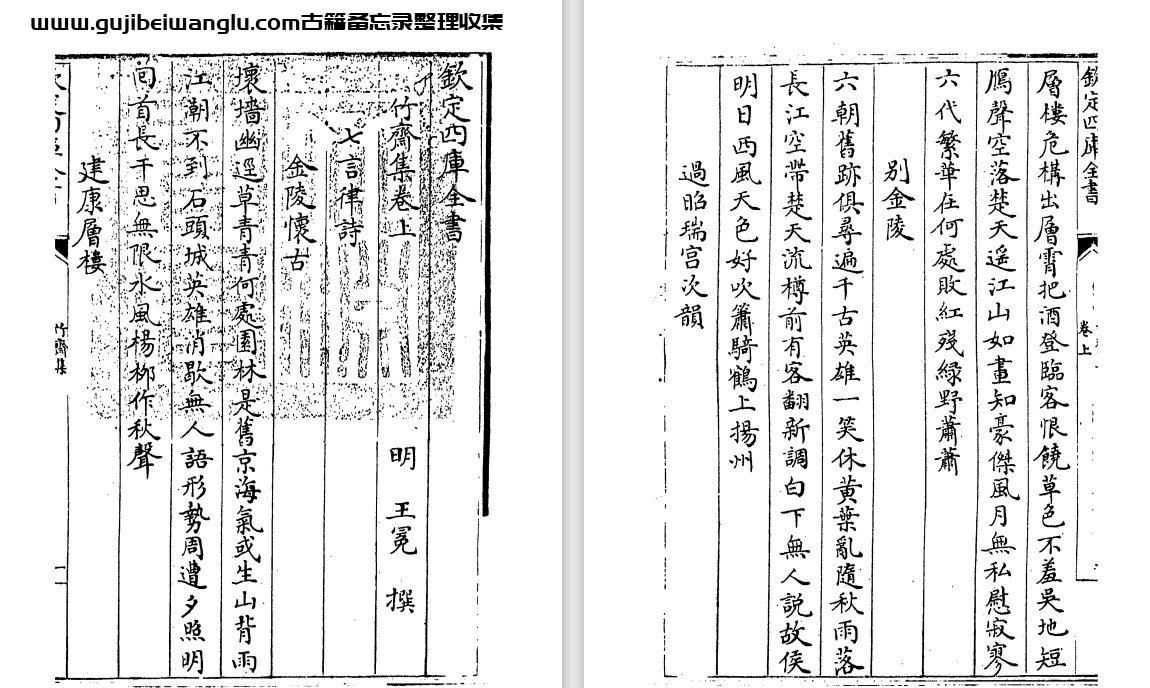 www.gujibeiwanglu.com古籍备忘录整理收集
欽定四庫全書
竹齋集卷上
明 王冕 撰
七言律詩
金陵懷古
壞墻幽逕草青青何處園林是舊京海氣或生山背雨
江潮不到石頭城英雄消歇無人語形勢周遭夕照明
回首長干思無限水風楊柳作秋聲
建康層樓
竹齋集
一
欽定四庫全書
卷上
層樓危構出層霄把酒登臨客恨饒草色不羞吳地短
鴈聲空落楚天遥江山如畫知豪傑風月無私慰寂寥
六代繁華在何處敗紅殘緑野蕭蕭
別金陵
六朝舊跡俱尋遍千古英雄一笑休黃葉亂隨秋雨落
長江空帶楚天流樽前有客翻新調白下無人説故侯
明日西風天色好吹簫騎鶴上揚州
過昭瑞宫次韻